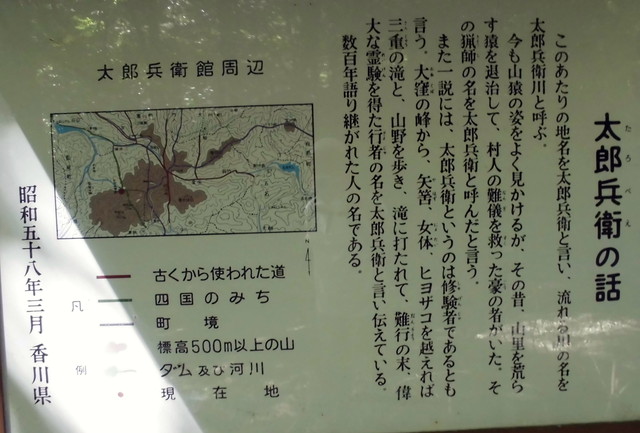 太郎兵衛の話
たろべえ
このあたりの地名を太郎兵衛と言い、流れる川の名を
太郎兵衛川と呼ぶ。
今も山猿の姿をよく見かけるが、その昔、山里を荒ら
す猿を退治して、村人の難儀を救った豪の者がいた。そ
の猟師の名を太郎兵衛と呼んだと言う。
また一説には、太郎兵衛というのは修験者であるとも
言う。大窪の峰から、矢筈、女体、ヒヨザコを越えれば
三重の滝と、山野を歩き、滝に打たれて、難行の末、偉
大な霊験を得た行者の名を太郎兵衛と言い伝えている。
数百年語り継がれた人の名である。
太郎兵衛館周辺
凡例
古くから使われた道
四国のみち
町境
標高500m以上の山
ダム及び河川
現在地
昭和五十八年三月 香川県